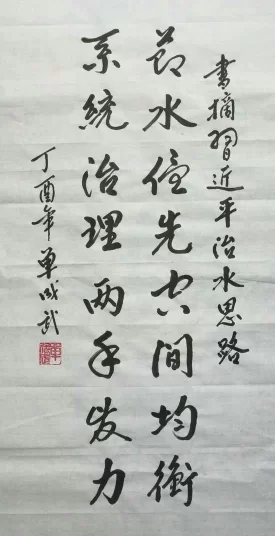 書摘習近平治水思路
節水優先空間均衡
系統治理两手发力
丁酉年單成武